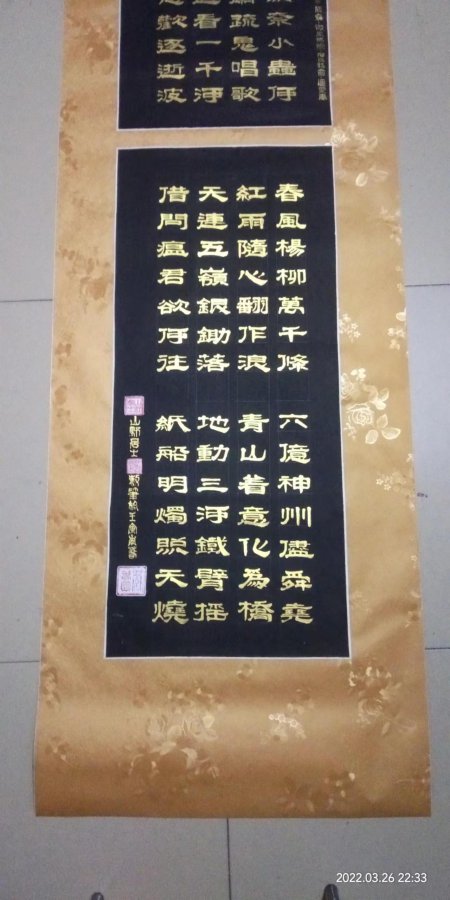 奈小蟲何
疏鬼唱歌
看一千河
歡逐逝波
春風楊柳萬千條 六億神州儘舜堯
紅雨隨心翻作浪 青山着意化為橋
天連五嶺銀鋤落 地動三河鐵臂搖
借問瘟君欲何往 紙船明燭照天燒
居士
2022.03.26 22:33